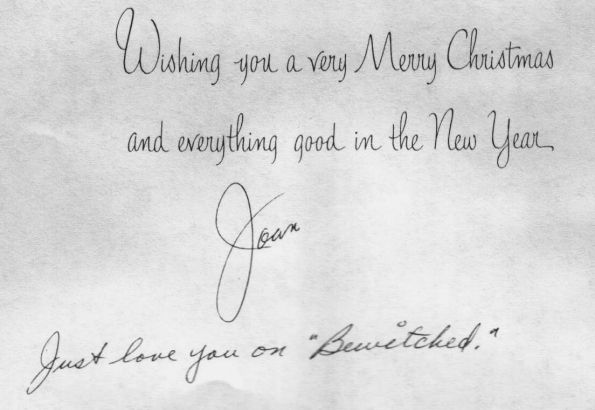 Wishing you a very Merry Christmas
and everything good in the New Year
Joan
Just love you on "Bewitched."